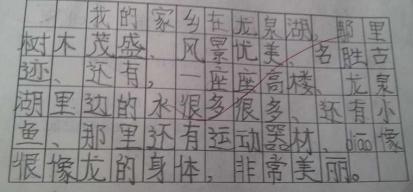 我的家乡在龙泉湖,那里
树木茂盛、风景优美、名胜古
迹、还有,一座座高楼、龙泉
湖里边的水很多很多、还有小
鱼、那里还有运动器材、diāo像
很像龙的身体,非常美丽。